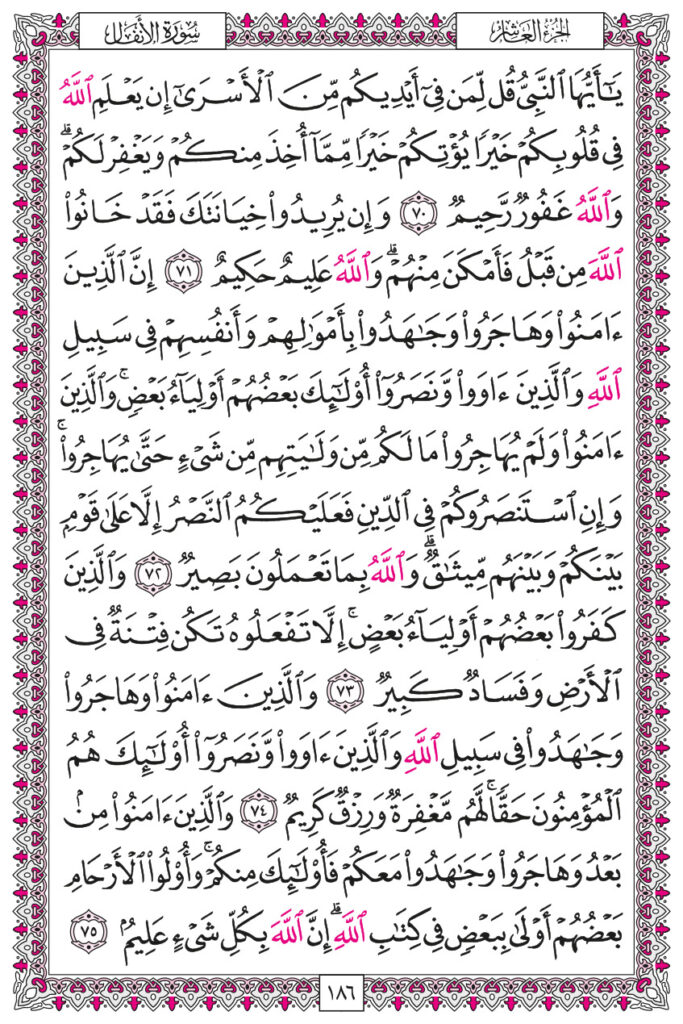 الجزء العاشر
سورة الأنفال
يَٰٓأَيُّهَا ٱلنَّبِيُّ قُل لِّمَن فِيٓ أَيْدِيكُم مِّنَ ٱلْأَسْرَىٰٓ إِن يَعْلَمِ ٱللَّهُ
فِي قُلُوبِكُمْ خَيْرًا يُؤْتِكُمْ خَيْرًا مِّمَّآ أُخِذَ مِنكُمْ وَيَغْفِرْ لَكُمْۗ
وَٱللَّهُ غَفُورٌ رَّحِيمٌ ٧٠ وَإِن يُرِيدُوا۟ خِيَانَتَكَ فَقَدْ خَانُوا۟
ٱللَّهَ مِن قَبْلُ فَأَمْكَنَ مِنْهُمْۗ وَٱللَّهُ عَلِيمٌ حَكِيمٌ ٧١ إِنَّ ٱلَّذِينَ
ءَامَنُوا۟ وَهَاجَرُوا۟ وَجَٰهَدُوا۟ بِأَمْوَٰلِهِمْ وَأَنفُسِهِمْ فِي سَبِيلِ
ٱللَّهِ وَٱلَّذِينَ ءَاوَوا۟ وَّنَصَرُوٓا۟ أُو۟لَٰٓئِكَ بَعْضُهُمْ أَوْلِيَآءُ بَعْضٍۚ وَٱلَّذِينَ
ءَامَنُوا۟ وَلَمْ يُهَاجِرُوا۟ مَا لَكُم مِّن وَلَٰيَتِهِم مِّن شَيْءٍ حَتَّىٰ يُهَاجِرُوا۟ۚ
وَإِنِ ٱسْتَنصَرُوكُمْ فِي ٱلدِّينِ فَعَلَيْكُمُ ٱلنَّصْرُ إِلَّا عَلَىٰ قَوْمِۭ
بَيْنَكُمْ وَبَيْنَهُم مِّيثَٰقٌۗ وَٱللَّهُ بِمَا تَعْمَلُونَ بَصِيرٌ ٧٢ وَٱلَّذِينَ
كَفَرُوا۟ بَعْضُهُمْ أَوْلِيَآءُ بَعْضٍۚ إِلَّا تَفْعَلُوهُ تَكُن فِتْنَةٌ فِي
ٱلْأَرْضِ وَفَسَادٌ كَبِيرٌ ٧٣ وَٱلَّذِينَ ءَامَنُوا۟ وَهَاجَرُوا۟
وَجَٰهَدُوا۟ فِي سَبِيلِ ٱللَّهِ وَٱلَّذِينَ ءَاوَوا۟ وَّنَصَرُوٓا۟ أُو۟لَٰٓئِكَ هُمُ
ٱلْمُؤْمِنُونَ حَقًّاۚ لَّهُم مَّغْفِرَةٌ وَرِزْقٌ كَرِيمٌ ٧٤ وَٱلَّذِينَ ءَامَنُوا۟ مِنۢ
بَعْدُ وَهَاجَرُوا۟ وَجَٰهَدُوا۟ مَعَكُمْ فَأُو۟لَٰٓئِكَ مِنكُمْۚ وَأُو۟لُوا۟ ٱلْأَرْحَامِ
بَعْضُهُمْ أَوْلَىٰ بِبَعْضٍ فِي كِتَٰبِ ٱللَّهِۗ إِنَّ ٱللَّهَ بِكُلِّ شَيْءٍ عَلِيمٌۢ ٧٥
١٨٦